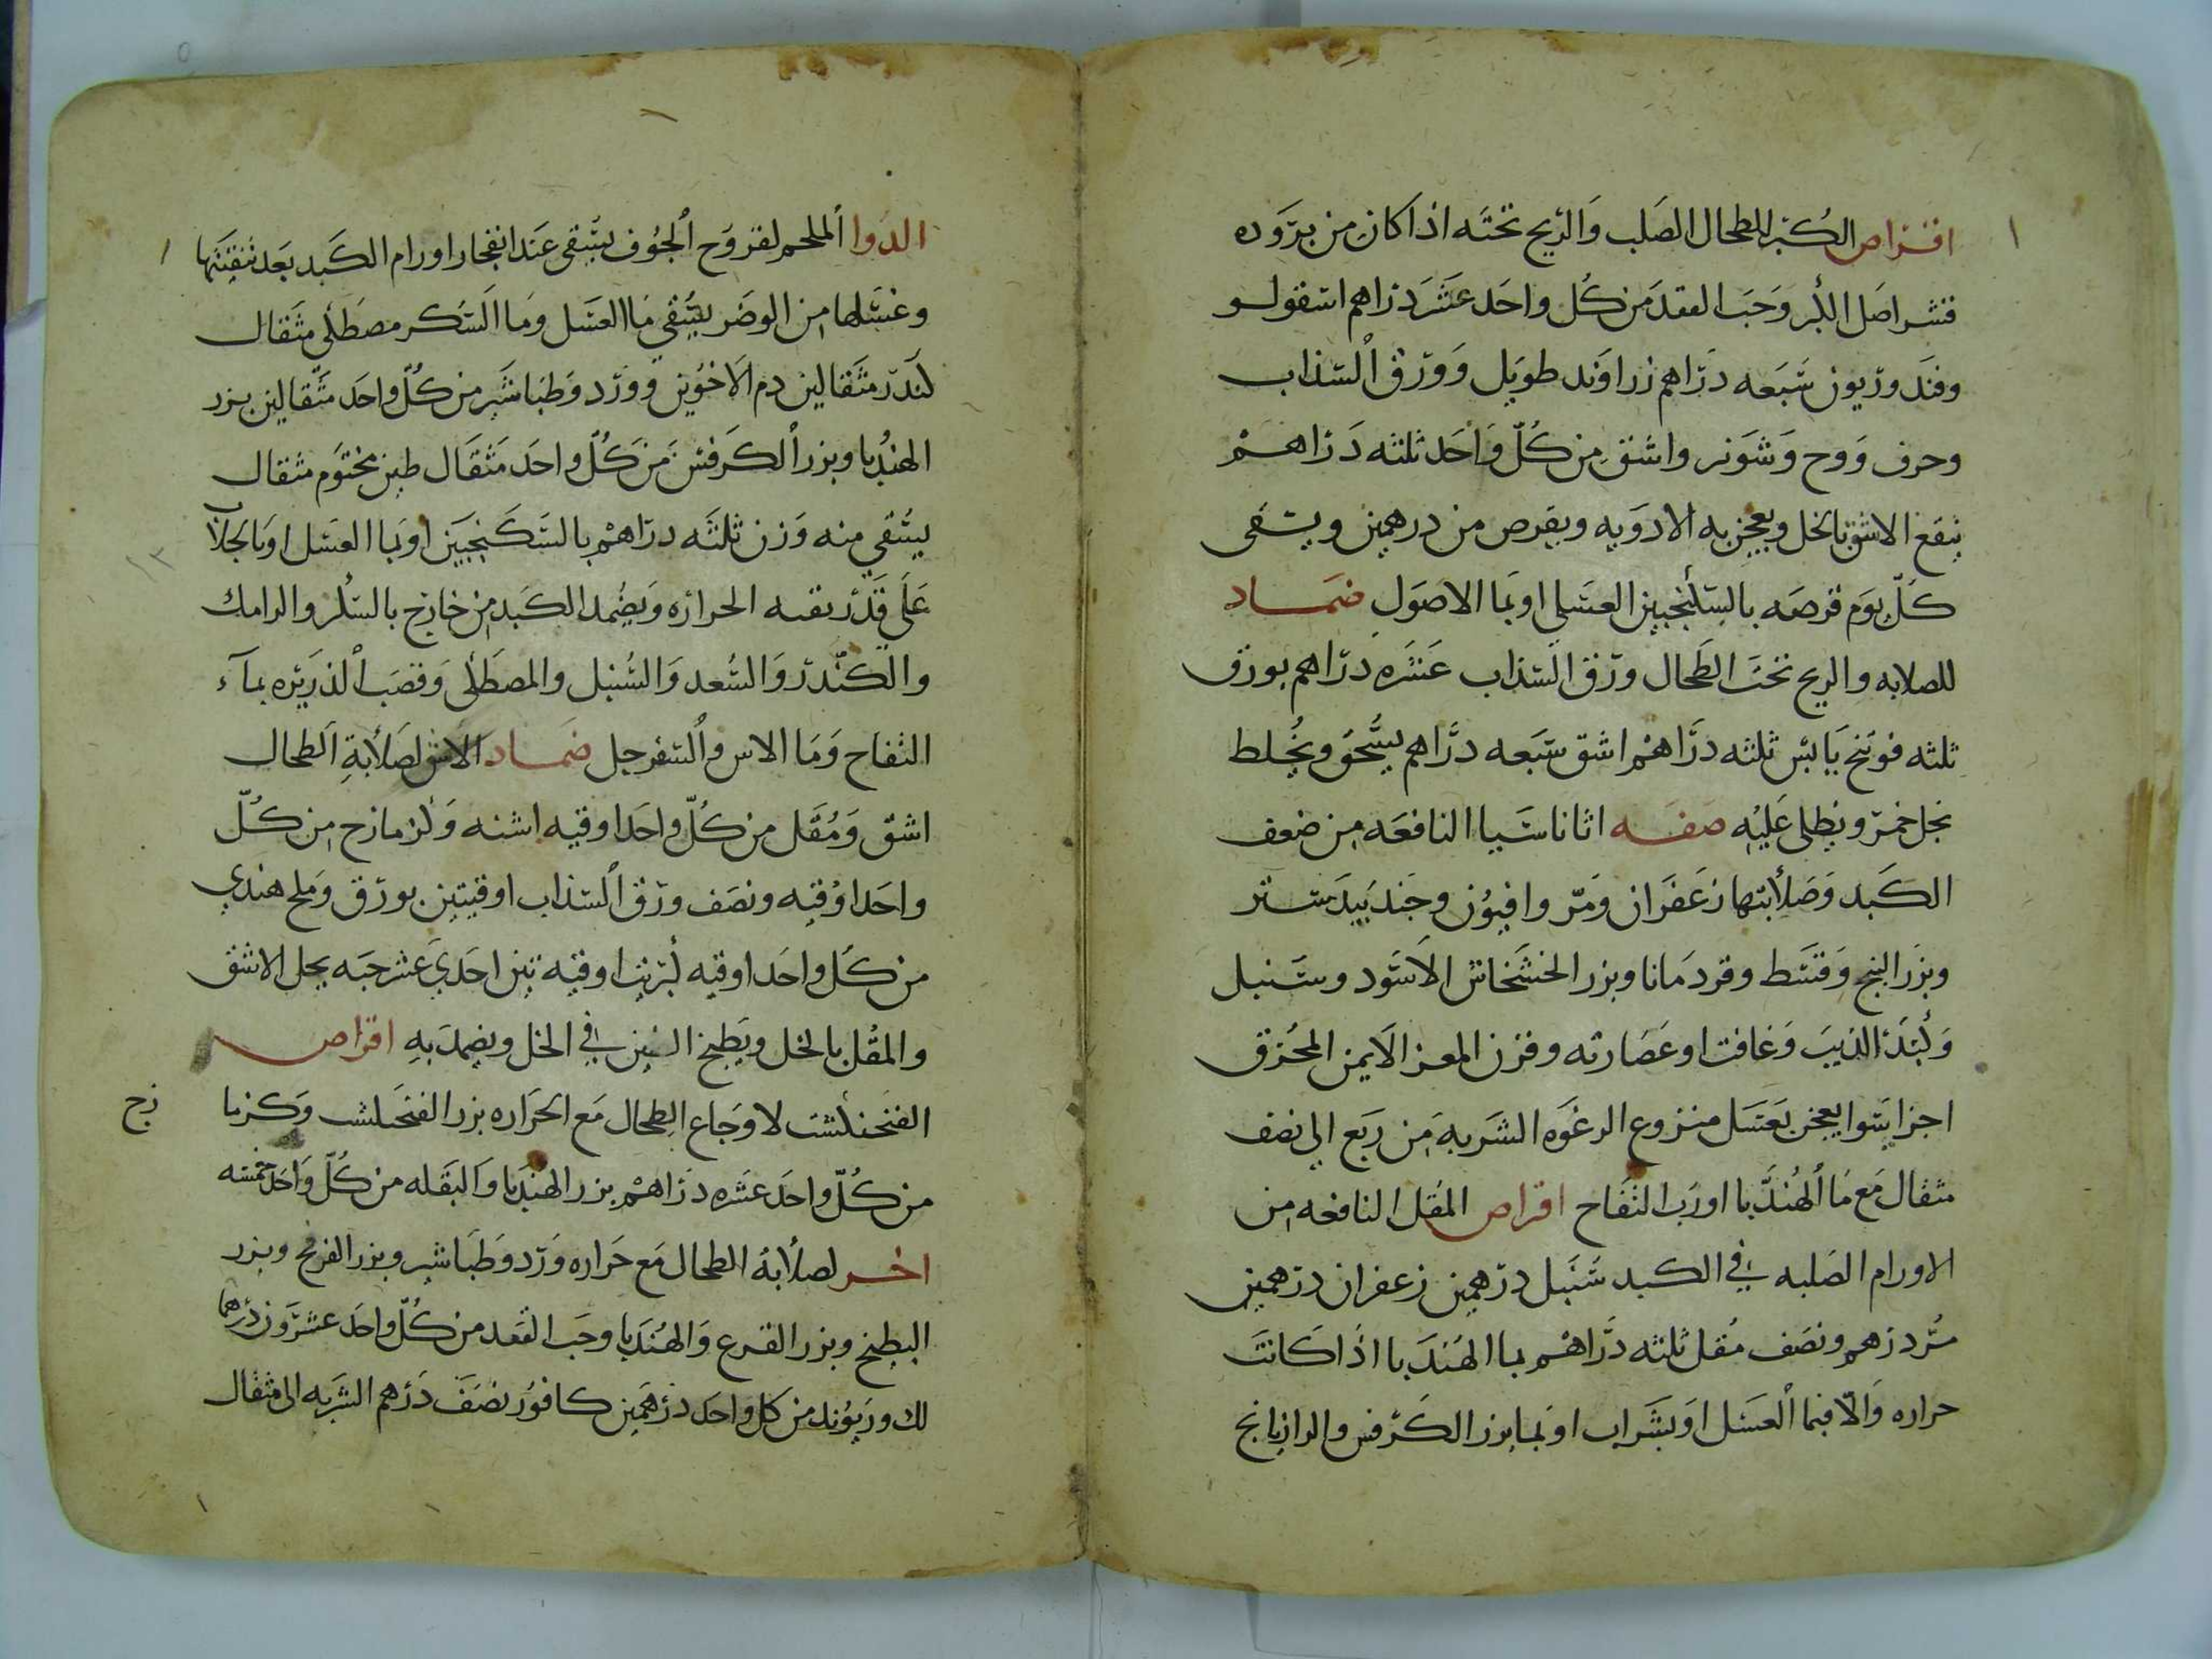 اقراص الكبر للطحال الصلب والريح تحته اذا كان من بروده
قشر اصل الكبر وحب الفقد من كل واحد عشر دراهم اسقولو
وفندوريون سبعه دراهم زراوند طويل وورق السذاب
وحرف ووج وشونز واشق من كل واحد ثلثه دراهم
ينقع الاشق بالخل ويعجن به الادويه ويقرص من درهمين ويسقى
كل يوم قرصه بالسكنجبين العسلي او بما الاصول ضماد
للصلابه والريح تحت الطحال ورق السذاب عشره دراهم بورق
ثلثه فوتنج يابس ثلثه دراهم اشق سبعه دراهم يسحق ويخلط
بخل خمر ويطلى عليه صفه اثاناسيا النافعه من ضعف
الكبد وصلابتها زعفران ومر وافيون وجندبيدستر
وبزر البنج وقسط وقردمانا وبزر الخشخاش الاسود وسنبل
وكبد الذيب وغافت او عصارته وقرن المعز الايمن المحرق
اجزا سوا يعجن بعسل منزوع الرغوه الشربه من ربع الي نصف
مثقال مع ما الهندبا او رب التفاح اقراص المقل النافعه من
الاورام الصلبه في الكبد سنبل درهمين زعفران درهمين
مر درهم ونصف مقل ثلثه دراهم بما الهندبا اذا كانت
حراره والا فبما العسل او بشراب او بما بزر الكرفس والرازيانج
الدوا الملحم لقروح الجوف يسقى عند انفجار اورام الكبد بعد تنقيتها
وغسلها من الوضر يسقي ما العسل وما السكر مصطكي مثقال
كندر مثقالين دم الاخوين وورد وطباشير من كل واحد مثقالين بزر
الهندبا وبزر الكرفس من كل واحد مثقال طين مختوم مثقال
يسقي منه وزن ثلثه دراهم بالسكنجبين او بما العسل او بالجلاب
علي قدر بقيه الحراره ويضمد الكبد من خارج بالسك والرامك
والكندر والسعد والسنبل والمصطكى وقصب الذريره بمآء
التفاح وما الاس والسفرجل ضماد الاشق لصلابة الطحال
اشق ومقل من كل واحد اوقيه اشنه وكزمازج من كل
واحد اوقيه ونصف ورق السذاب اوقيتين بورق وملح هندي
من كل واحد اوقيه كبريت اوقيه تين احدي عشر حبه يحل الاشق
والمقل بالخل ويطبخ التين في الخل ويضمد به اقراص
الفنجنكشت لاوجاع الطحال مع الحراره بزر الفنجنكشت وكزما
زج
من كل واحد عشره دراهم بزر الهندبا والبقله من كل واحد خمسه
اخر لصلابة الطحال مع حراره ورد وطباشير وبزر الفرفح وبزر
البطيخ وبزر القرع والهندبا وحب الفقد من كل واحد عشرون درهما
لك وريوند من كل واحد درهمين كافور نصف درهم الشربه الى مثقال